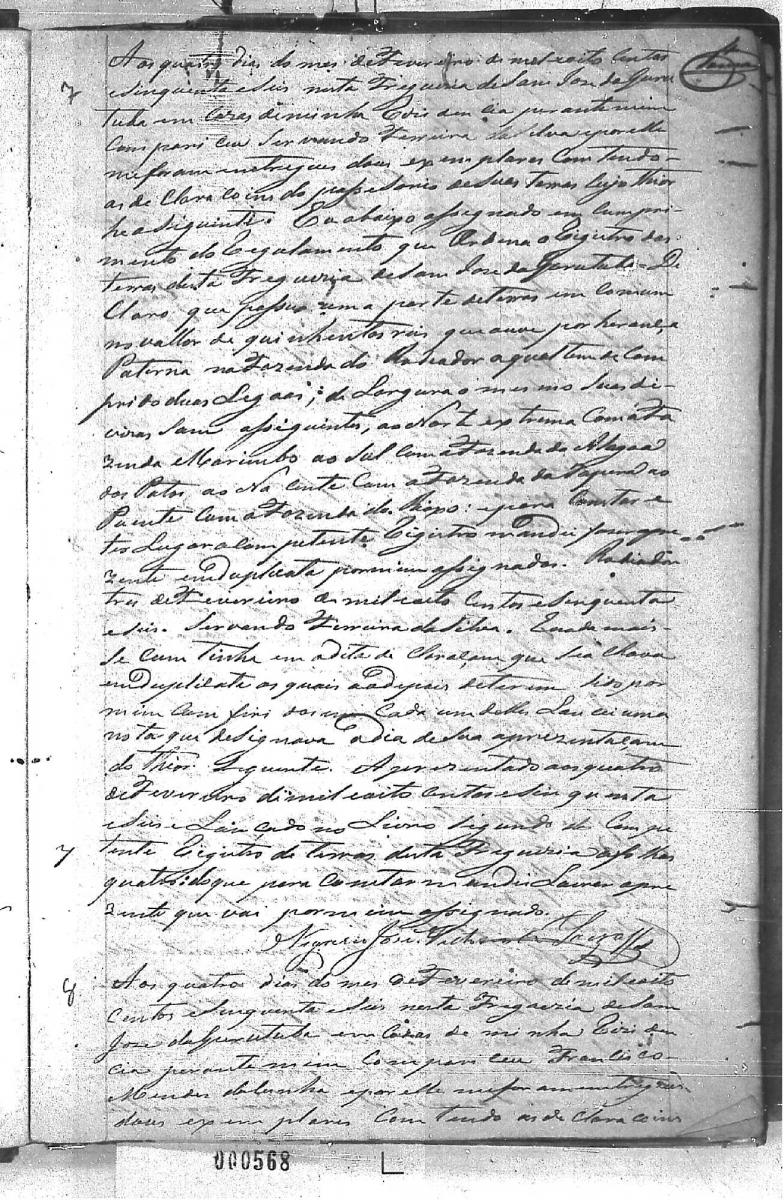 7
Aos quatro dias do mes de Fevereiro de mil e oito centos
e Sinquenta e Seis nesta Freguezia de Sam Jose da Guru
tuba em Cazas de minha Rezidencia perante mim
Comparic eu Servando Ferreira da Silva e por elle
me foram entregues dous exemplares Comtendo
as de Claracoins do possesorio de Suas terras Cujo Thior
he o Siguinte. Eu abaixo assignado em Cumpri-
mento do Regulamento que Ordena o Rigistro das
terras desta Freguezia de Sam Jose da Gurutuba = De
Claro que possuo uma parte de terras em Comum
no vallor de quinhentos reis que ouve por herança
Paterna na Fazenda do Rodeador a qual tem de Com
prido duas Legoas, e de Largura o mesmo Suas di-
vizas Sam as Siguintes, ao Norte extrema Com a Fa
zenda Marimbo ao Sul Com a Fazenda da Alagoa
dos Patos, ao Nacente Com a Fazenda da Tapera ao
Puente Com a Fazenda do : e para Constar e
ter Lugar o Competente Rigistro mandei o pre
zente em Duplicata por mim assignados. Rodiador
tres de Fevereiro de mil e oito Centos e Sinquenta
e Seis. Servando Ferreira da Silva. E nada mais
Se Comtinha em a dita de Claraçam que Se a Chava
em Duplicata os quais a o depois de terem Sido por
mim Com firi dos em Cada um delles Lancei uma
nota que designava o dia de Sua aprezentaçam
do Thior Seguinte. Aprezentado aos quatro
de Fevereiro de mil e oito Centos e Sin quenta
e Seis e Lancado no Livro Segundo do Compe
7
tente Rigistro de terras desta Freguezia a folhas
quatro: do que para Constar mandei Lavrar o pre
zente que vai por mim assignado.
José
8
Aos quatro dias do mes de Fevereiro de mil e oito
centos e Sinquenta e Seis nesta Freguezia de Sam
Joze da Gurutuba em Cazas de minha Reziden
cia perante mim Compariceu Francisco
Mendes da Cunha e por elle me foram entregues
dous exemplares Com tendo as de Claracoins
000568